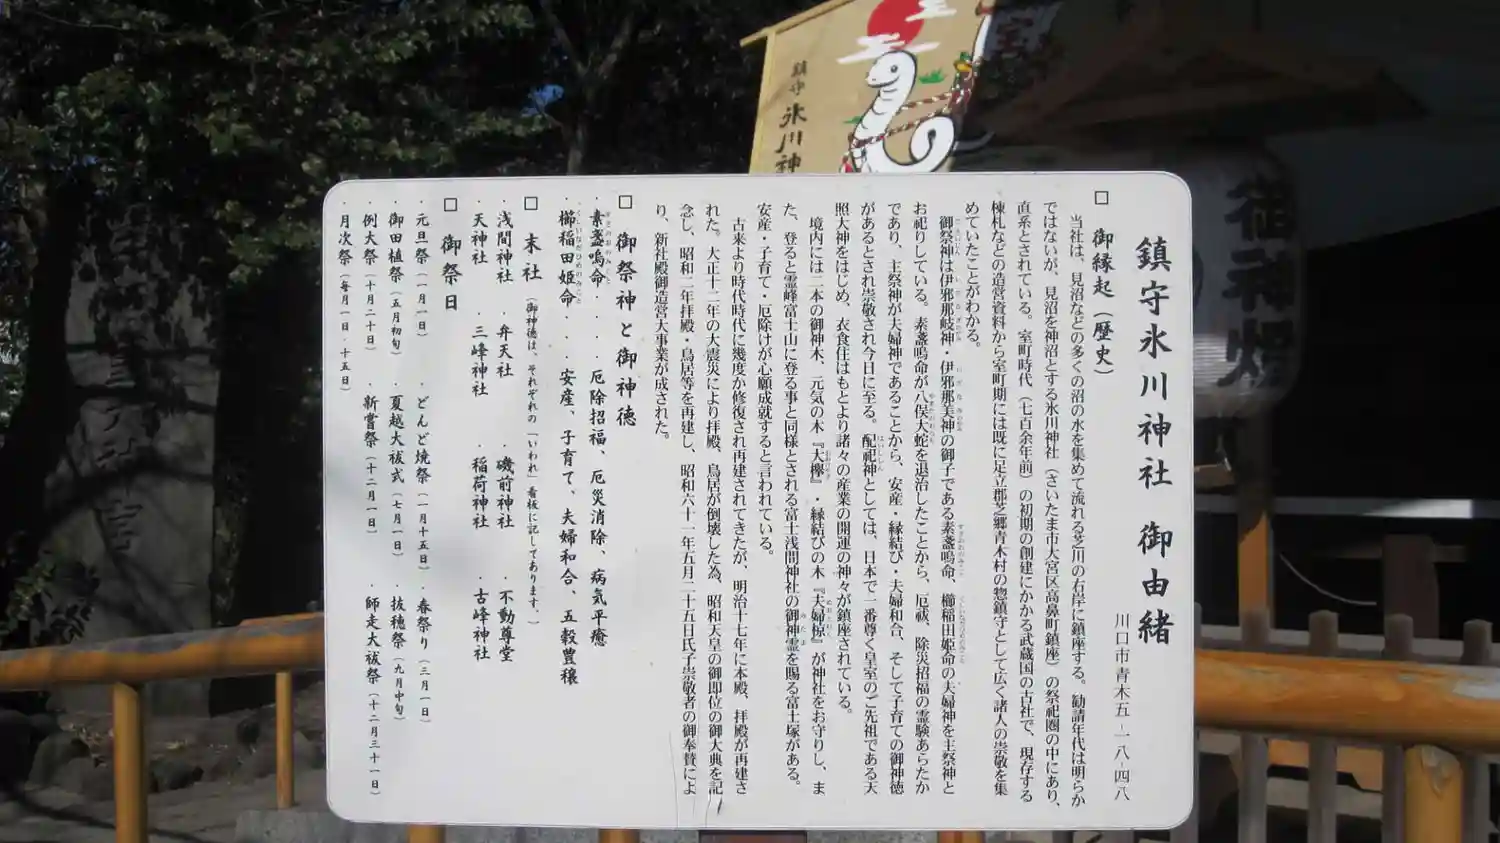 鎮守氷川神
御神燈
鎮守氷川神社 御由緒
川口市青木五-一八-四八
□ 御縁起（歴史）
当社は、見沼などの多くの沼の水を集めて流れる芝川の右岸に鎮座する。勧請年代は明らか
ではないが、見沼を神沼とする氷川神社（さいたま市大宮区高鼻町鎮座）の祭祀圏の中にあり、
直系とされている。室町時代（七百余年前）の初期の創建にかかる武蔵国の古社で、現存する
棟札などの造営資料から室町期には既に足立郡芝郷青木村の惣鎮守として広く諸人の崇敬を集
めていたことがわかる。
御祭神は伊邪那岐神・伊邪那美神の御子である素盞嗚命、櫛稲田姫命の夫婦神を主祭神と
お祀りしている。素盞嗚命が八俣大蛇を退治したことから、厄祓、除災招福の霊験あらたか
であり、主祭神が夫婦神であることから、安産・縁結び・夫婦和合、そして子育ての御神徳
があるとされ崇敬され今日に至る。配祀神としては、日本で一番尊く皇室のご先祖である天
照大神をはじめ、衣食住はもとより諸々の産業の開運の神々が鎮座されている。
境内には二本の御神木、元気の木『大欅』・縁結びの木『夫婦椋』が神社をお守りし、ま
た、登ると霊峰富士山に登る事と同様とされる富士浅間神社の御神霊を賜る富士塚がある。
安産・子育て・厄除けが心願成就すると言われている。
古来より時代時代に幾度か修復され再建されてきたが、明治十七年に本殿、拝殿が再建さ
れた。大正十二年の大震災により拝殿、鳥居が倒壊した為、昭和天皇の御即位の御大典を記
念し、昭和二年拝殿・鳥居等を再建し、昭和六十一年五月二十五日氏子崇敬者の御奉賛によ
り、新社殿御造営大事業が成された。
□ 御祭神と御神徳
・素盞嗚命・・・厄除招福、厄災消除、病気平癒
・櫛稲田姫命・・安産、子育て、夫婦和合、五穀豊穣
□ 末社（御神徳は、それぞれの「いわれ」看板に記してあります。）
・浅間神社 ・弁天社 ・磯前神社 ・不動尊堂
・天神社 ・三峰神社 ・稲荷神社 ・古峰神社
□ 御祭日
・元旦祭（一月一日） ・どんど焼祭（一月十五日） ・春祭り（三月一日）
・御田植祭（五月初旬） ・夏越大祓式（七月一日） ・抜穂祭（九月中旬）
・例大祭（十月二十日） ・新嘗祭（十二月一日） ・師走大祓祭（十二月三十一日）
・月次祭（毎月一日・十五日）